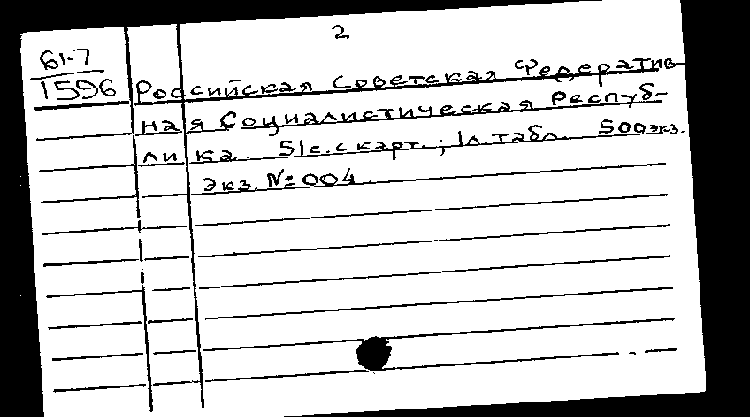 2
61-7
1596
Российская Советская Федератив-
ная Социалистическая Респуб-
лика 51с. с карт.; 1л. табл. 500экз.
Экз. №004